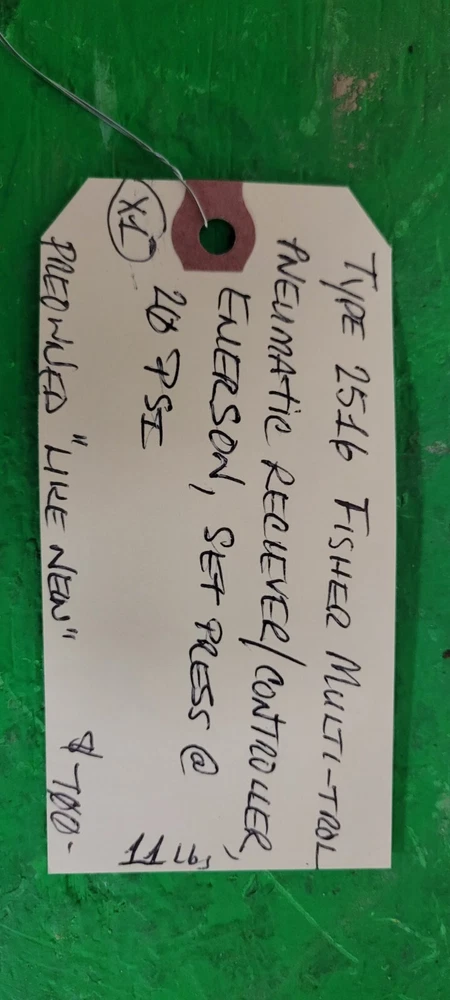 TYPE 2516 FISHER MULTI-TROL
PNEUMATIC RECIEVER/CONTROLLER,
EMERSON, SET PRESS @
20 PSI
X1
PREOWNED "LIKE NEW" $700.-
11 LBS